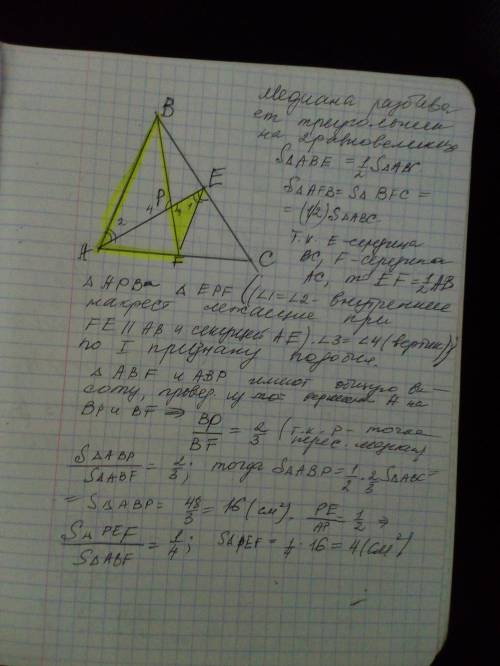 Медиана разбива
ет треугольник
на 2 равновеликих
S△ABE = 1/2 S△ABC
S△AFB = S△BFC =
= (1/2) S△ABC.
B
E
P
4
3
1
2
A
F
C
Т.к. E-середина
BC, F-середина
AC, то EF = 1/2 AB
△APB ~ △EPF (∠1=∠2 - внутренние
накрест лежащие при
FE || AB и секущей AE). ∠3=∠4 (вертик)
по I признаку подобия.
△ABF и △ABP имеют общую вы-
соту, провед. из вершины A на
BP и BF ⇒ BP/BF = 2/3 (т.к. P - точка
перес. медиан)
S△ABP/S△ABF = 2/3; тогда S△ABP = 1/2 · 2/3 S△ABC =
= S△ABP = 48/3 = 16 (см²). PE/AP = 1/2 ⇒
S△PEF/S△ABF = 1/4; S△PEF = 1/4 · 16 = 4 (см²)